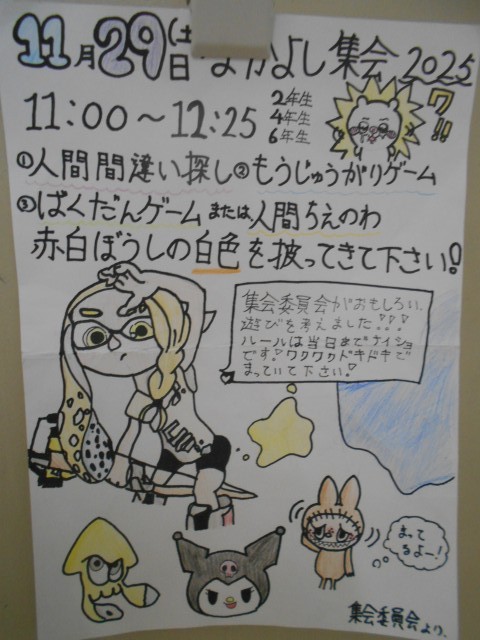 11月29日(土)なかよし集会2025
ワ!!
11:00～12:25
2年生
4年生
6年生
①人間間違い探し②もうじゅうがりゲーム
③ばくだんゲームまたは人間ちえのわ
赤白ぼうしの白色を披ってきて下さい!
集会委員会がおもしろい、
遊びを考えました!!!
ルールは当日までナイショ
です!ワクワクドキドキで
まっていて下さい!
まって
るよー!
集会委員会より。